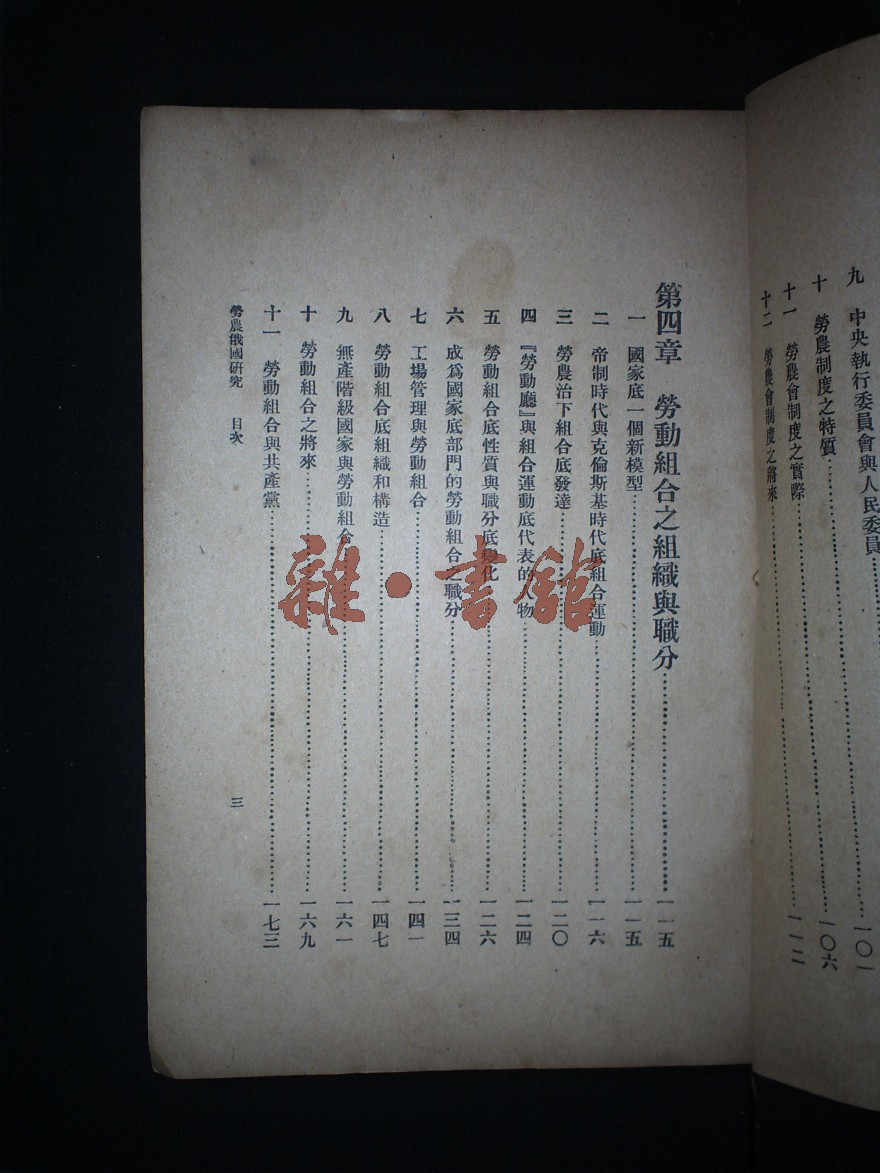 九　中央執行委員會與人民委員……一〇一
十　勞農制度之特質……一〇六
十一　勞農會制度之實際
十二　勞農會制度之將來……一一二
第四章　勞動組合之組織與職分……一一五
一　國家底一個新模型……一一五
二　帝制時代與克倫斯基時代底組合運動……一一六
三　勞農治下組合底發達……一二〇
四　『勞動廳』與組合運動底代表的人物……一二四
五　勞動組合底性質與職分底變化……一二六
六　成爲國家底部門的勞動組合之職分……一三四
七　工場管理與勞動組合……一四一
八　勞動組合底組織和構造……一四七
九　無產階級國家與勞動組合……一六一
十　勞動組合之將來……一六九
十一　勞動組合與共產黨……一七三
勞農俄國研究　目次　三
雜·書館